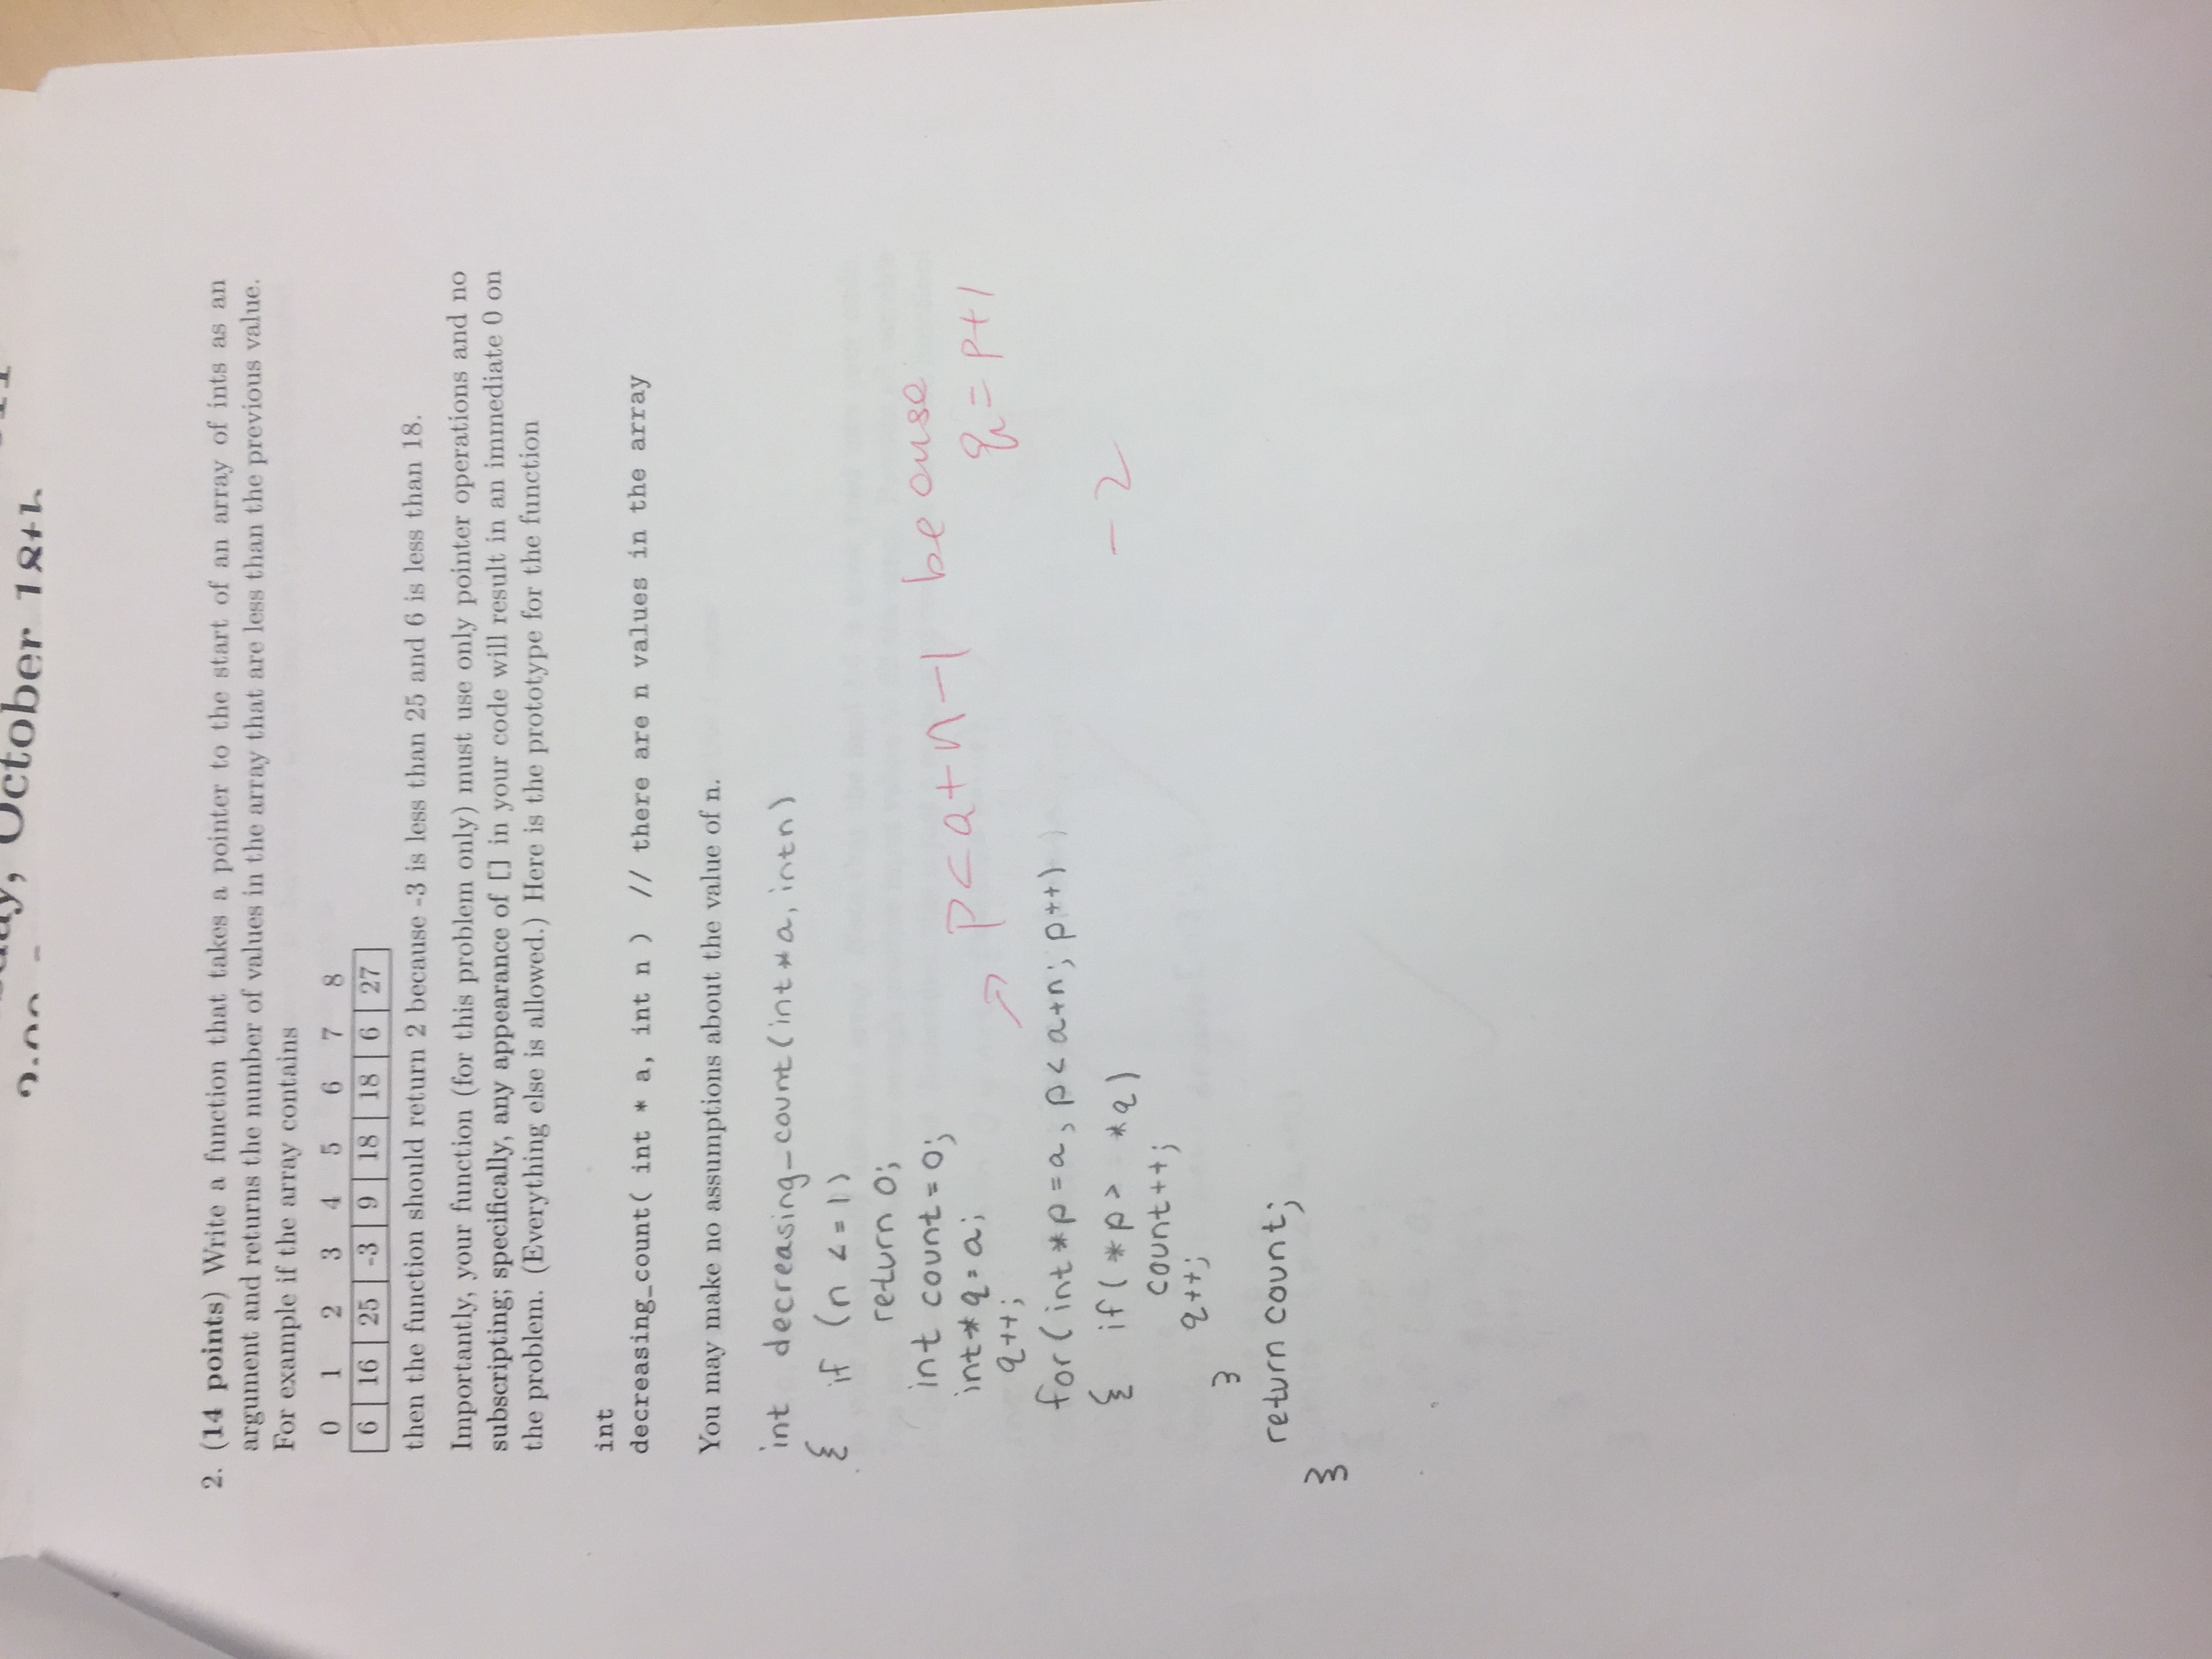 October 18th
2. (14 points) Write a function that takes a pointer to the start of an array of ints as an
argument and returns the number of values in the array that are less than the previous value.
For example if the array contains
0 1 2 3 4 5 6 7 8
6 16 25 -3 9 18 18 6 27
then the function should return 2 because -3 is less than 25 and 6 is less than 18.
Importantly, your function (for this problem only) must use only pointer operations and no
subscripting; specifically, any appearance of [] in your code will result in an immediate 0 on
the problem. (Everything else is allowed.) Here is the prototype for the function
int
decreasing_count( int * a, int n ) // there are n values in the array
You may make no assumptions about the value of n.
int decreasing_count(int*a, int n)
{ if (n <= 1)
return 0;
int count = 0;
int* q = a;
q++;
p<a+n-1 because
q = p+1
for(int*p=a; p<a+n; p++)
{ if(*p> *q)
-2
count++;
q++;
}
return count;
}